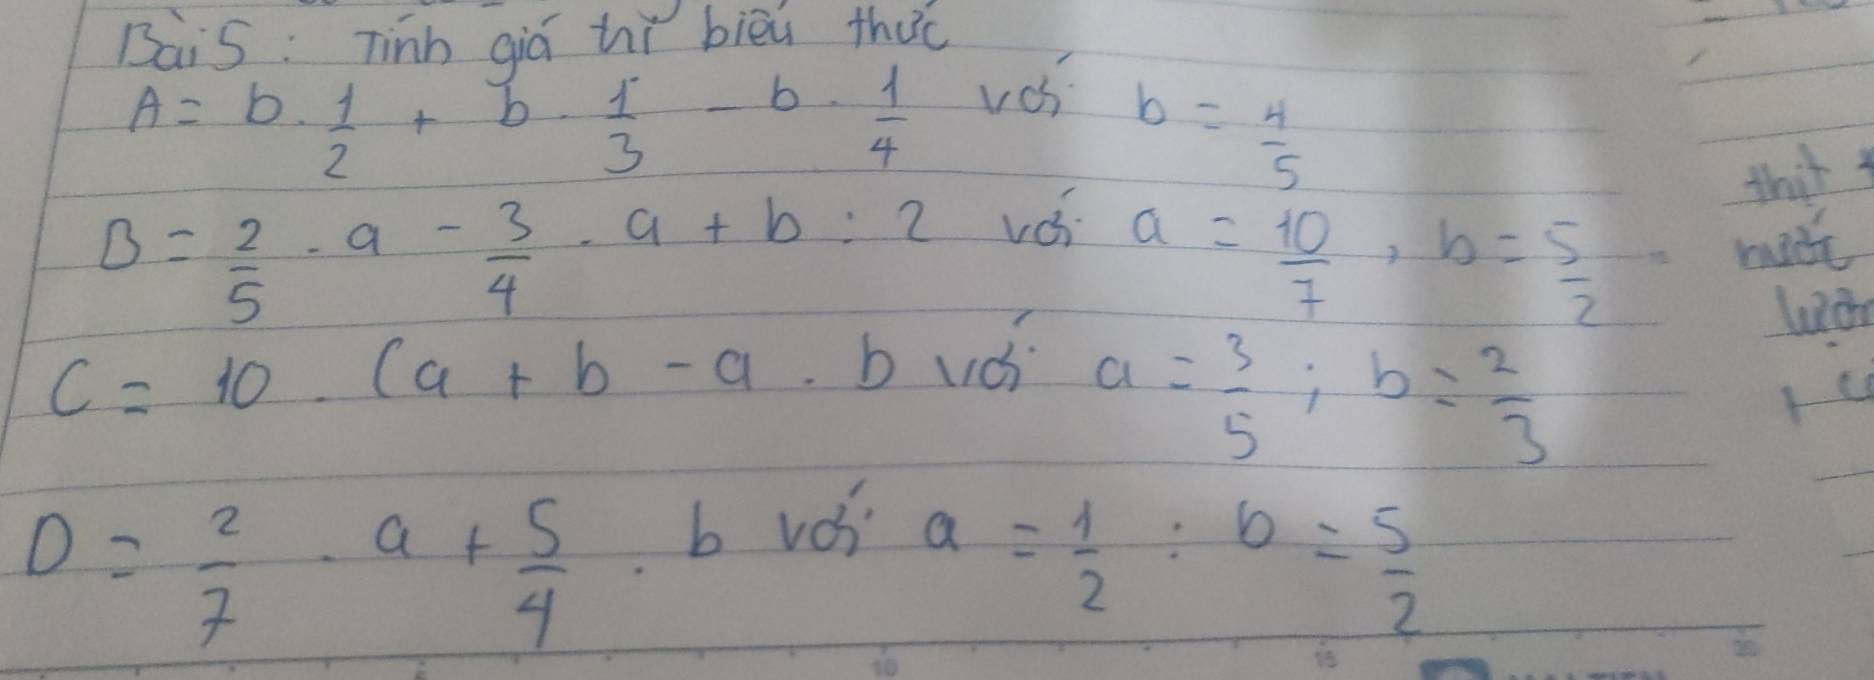 Bài 5 : Tính giá trị biểu thức
A = b . 1/2 + b . 1/3 - b . 1/4 với b = 4/5
B = 2/5 . a - 3/4 . a + b : 2 với a = 10/7 , b = 5/2
C = 10 . (a + b - a . b với a = 3/5 ; b = 2/3
D = 2/7 . a + 5/4 . b với a = 1/2 : b = 5/2
thịt
nước
10 15 20